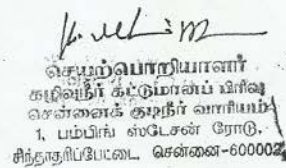 செயற்பொறியாளர்
கழிவுநீர் கட்டுமானப் பிரிவு
சென்னைக் குடிநீர் வாரியம்
1, பம்பிங் ஸ்டேசன் ரோடு,
சிந்தாதரிப்பேட்டை, சென்னை-600002